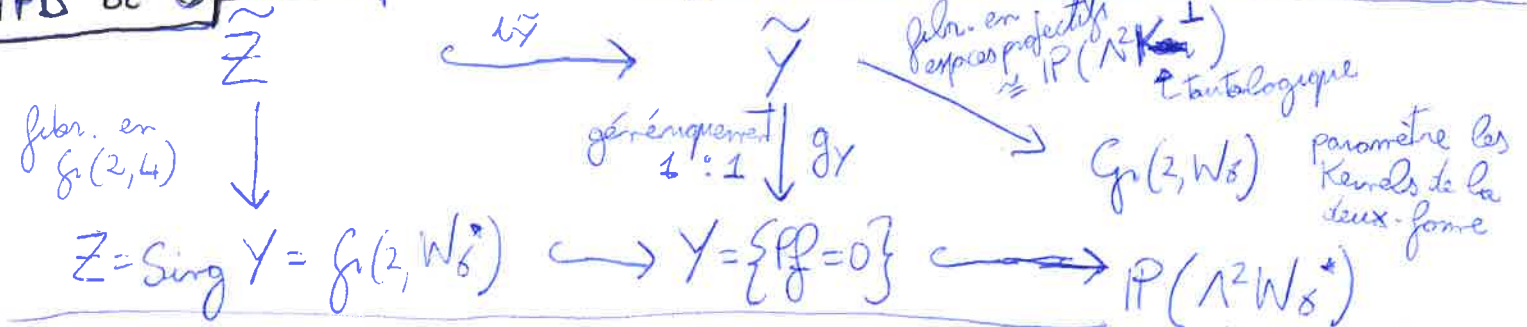 Z̃ ι_Ỹ Ỹ fibr. en espaces projectifs
≅ P(Λ²K^⊥)
↑ tautologique
fibr. en Gr(2,4)
génériquement 1:1 g_Y
Gr(2, W₆) paramètre les Kernels de la deux-forme
Z = Sing Y = Gr(2, W₆*) ↪ Y = {Pf = 0} ↪ P(Λ²W₆*)